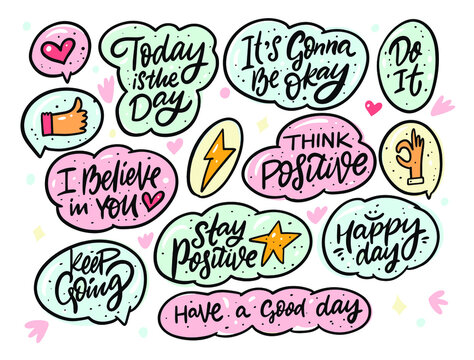 Today
is the
Day
It's Gonna
Be Okay
Do
It
I Believe
in You
THINK
Positive
Keep
Going
Stay
Positive
Happy
day
Have a Good day